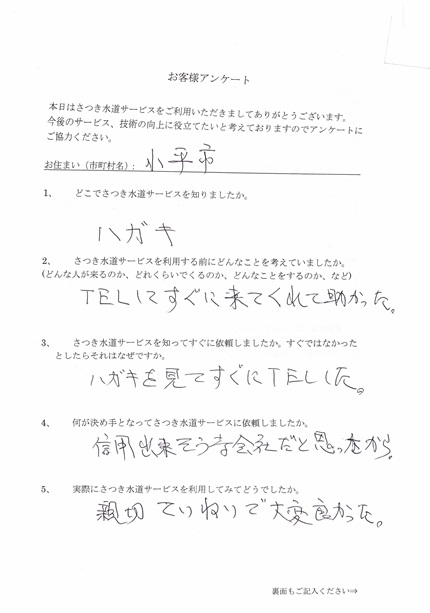 お客様アンケート
本日はさつき水道サービスをご利用いただきましてありがとうございます。
今後のサービス、技術の向上に役立てたいと考えておりますのでアンケートに
ご協力ください。
お住まい(市町村名):小平市
1、 どこでさつき水道サービスを知りましたか。
ハガキ
2、 さつき水道サービスを利用する前にどんなことを考えていましたか。
(どんな人が来るのか、どれくらいでくるのか、どんなことをするのか、など)
TELしてすぐに来てくれて助かった。
3、 さつき水道サービスを知ってすぐに依頼しましたか。すぐではなかった
としたらそれはなぜですか。
ハガキを見てすぐにTELした。
4、 何が決め手となってさつき水道サービスに依頼しましたか。
信用出来そうな会社だと思ったから。
5、 実際にさつき水道サービスを利用してみてどうでしたか。
親切 ていねいで大変良かった。
裏面もご記入ください⇒